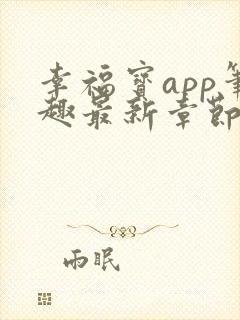 幸福宝app笔
趣最新章节
雨眠